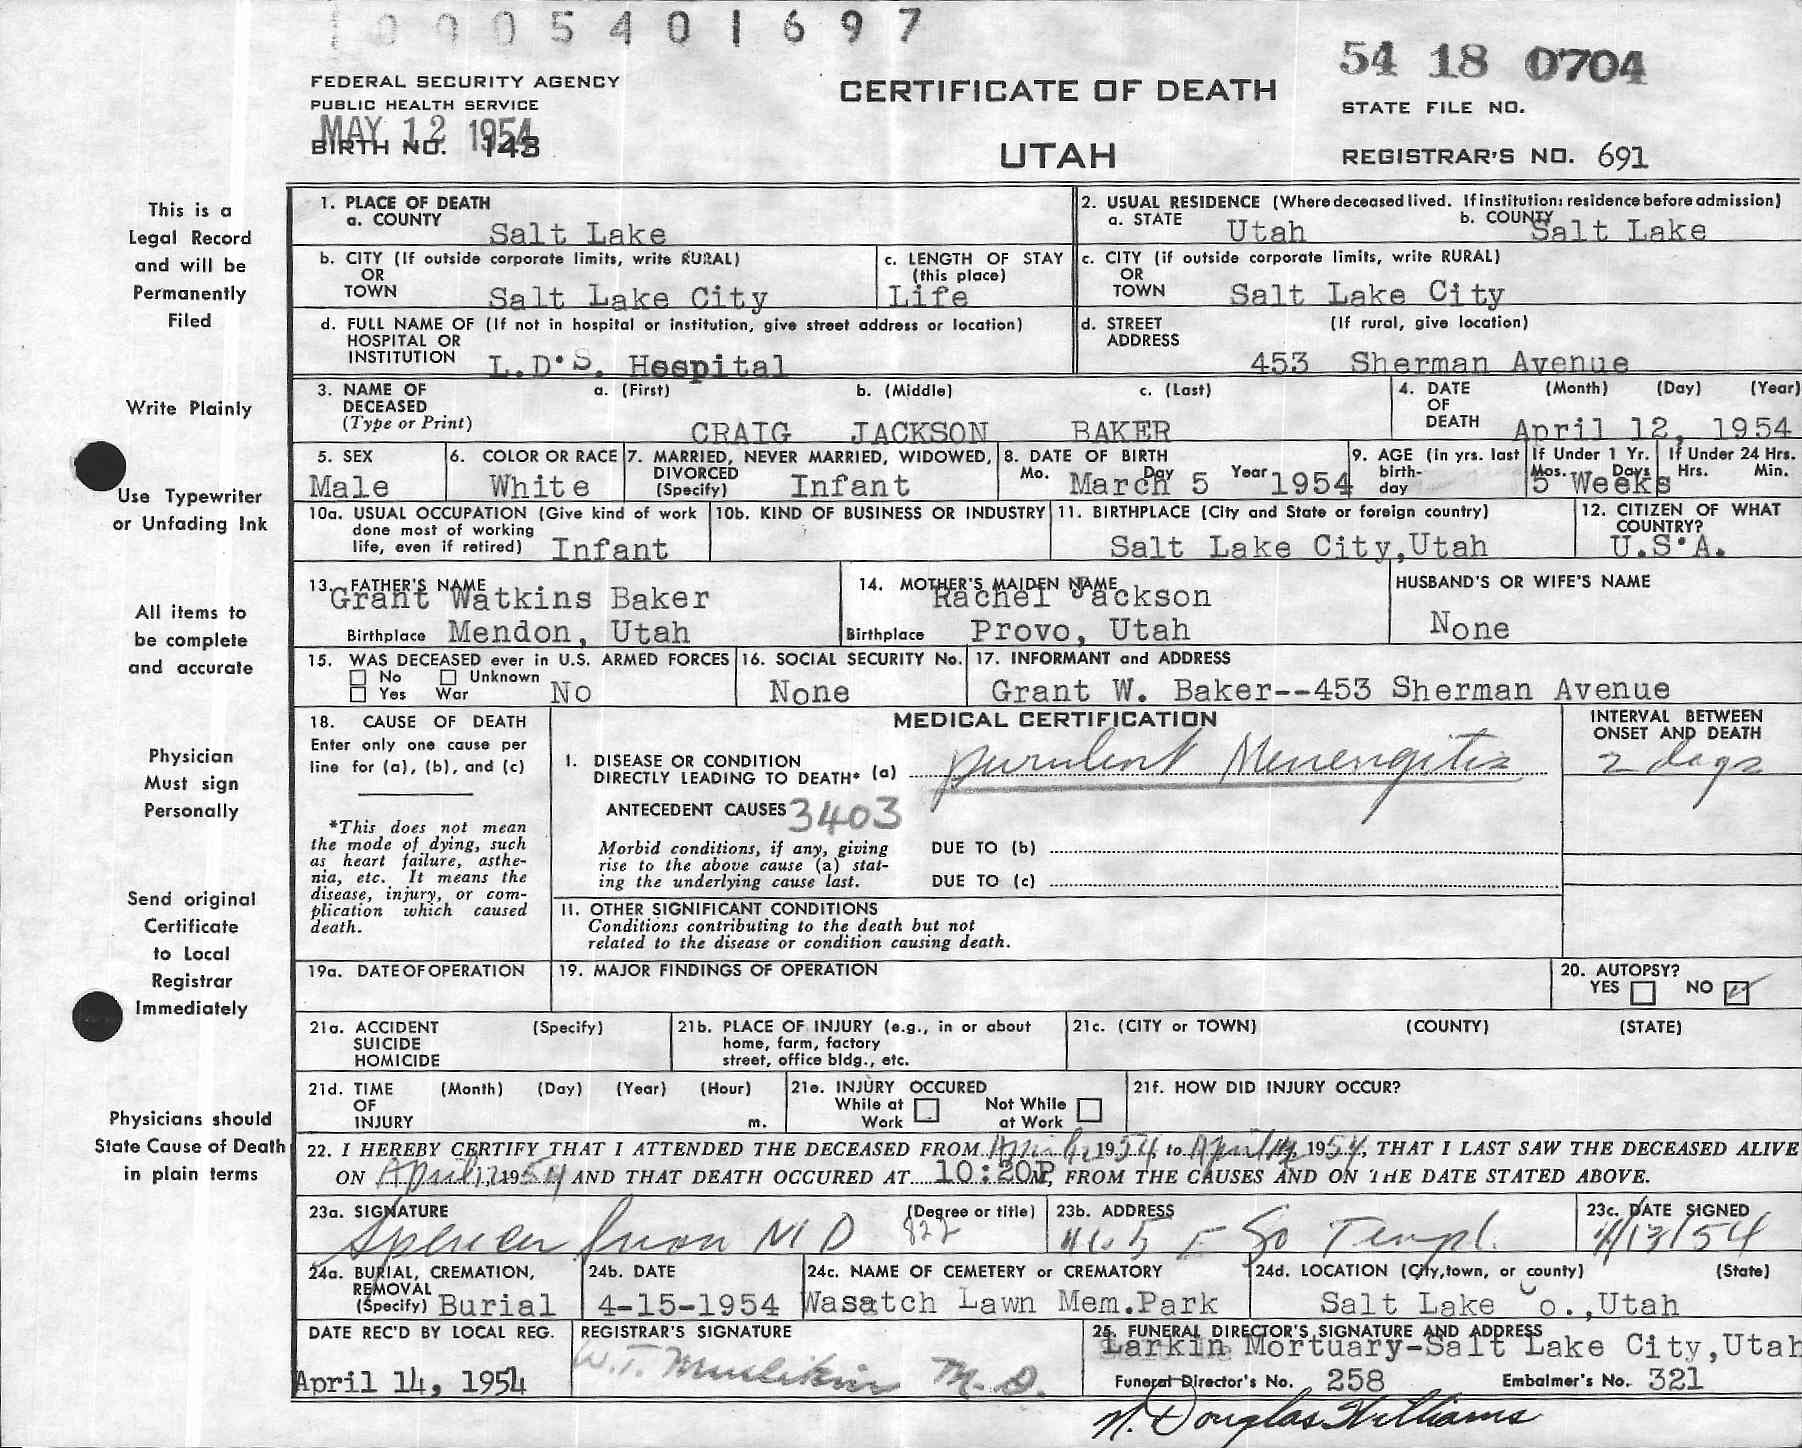 10005401697
54 18 0704
FEDERAL SECURITY AGENCY
PUBLIC HEALTH SERVICE
CERTIFICATE OF DEATH
STATE FILE NO.
MAY 12 1954
BIRTH NO. 143
UTAH
REGISTRAR'S NO. 691
This is a
Legal Record
and will be
Permanently
Filed
Write Plainly
Use Typewriter
or Unfading Ink
All items to
be complete
and accurate
Physician
Must sign
Personally
Send original
Certificate
to Local
Registrar
Immediately
Physicians should
State Cause of Death
in plain terms
1. PLACE OF DEATH
a. COUNTY Salt Lake
2. USUAL RESIDENCE (Where deceased lived. If institution: residence before admission)
a. STATE Utah b. COUNTY Salt Lake
b. CITY (If outside corporate limits, write RURAL)
OR
TOWN Salt Lake City
c. LENGTH OF STAY
(this place)
Life
c. CITY (if outside corporate limits, write RURAL)
OR
TOWN Salt Lake City
d. FULL NAME OF (If not in hospital or institution, give street address or location)
HOSPITAL OR
INSTITUTION L.D.S. Hospital
d. STREET (If rural, give location)
ADDRESS
453 Sherman Avenue
3. NAME OF a. (First) b. (Middle) c. (Last)
DECEASED
(Type or Print) CRAIG JACKSON BAKER
4. DATE (Month) (Day) (Year)
OF
DEATH April 12, 1954
5. SEX
Male
6. COLOR OR RACE
White
7. MARRIED, NEVER MARRIED, WIDOWED,
DIVORCED
(Specify) Infant
8. DATE OF BIRTH
Mo. Day Year
March 5 1954
9. AGE (in yrs. last
birth-
day
If Under 1 Yr.
Mos. Days
5 Weeks
If Under 24 Hrs.
Hrs. Min.
10a. USUAL OCCUPATION (Give kind of work
done most of working
life, even if retired) Infant
10b. KIND OF BUSINESS OR INDUSTRY
11. BIRTHPLACE (City and State or foreign country)
Salt Lake City,Utah
12. CITIZEN OF WHAT
COUNTRY?
U.S.A.
13. FATHER'S NAME
Grant Watkins Baker
Birthplace Mendon, Utah
14. MOTHER'S MAIDEN NAME
Rachel Jackson
Birthplace Provo, Utah
HUSBAND'S OR WIFE'S NAME
None
15. WAS DECEASED ever in U.S. ARMED FORCES
No Unknown
Yes War No
16. SOCIAL SECURITY No.
None
17. INFORMANT and ADDRESS
Grant W. Baker--453 Sherman Avenue
18. CAUSE OF DEATH
Enter only one cause per
line for (a), (b), and (c)
*This does not mean
the mode of dying, such
as heart failure, asthe-
nia, etc. It means the
disease, injury, or com-
plication which caused
death.
MEDICAL CERTIFICATION
INTERVAL BETWEEN
ONSET AND DEATH
I. DISEASE OR CONDITION
DIRECTLY LEADING TO DEATH* (a) purulent Menengitis 2 days
ANTECEDENT CAUSES 3403
Morbid conditions, if any, giving
rise to the above cause (a) stat-
ing the underlying cause last.
DUE TO (b)
DUE TO (c)
II. OTHER SIGNIFICANT CONDITIONS
Conditions contributing to the death but not
related to the disease or condition causing death.
19a. DATE OF OPERATION
19. MAJOR FINDINGS OF OPERATION
20. AUTOPSY?
YES NO
21a. ACCIDENT (Specify)
SUICIDE
HOMICIDE
21b. PLACE OF INJURY (e.g., in or about
home, farm, factory
street, office bldg., etc.
21c. (CITY or TOWN) (COUNTY) (STATE)
21d. TIME (Month) (Day) (Year) (Hour)
OF
INJURY m.
21e. INJURY OCCURED
While at Not While
Work at Work
21f. HOW DID INJURY OCCUR?
22. I HEREBY CERTIFY THAT I ATTENDED THE DECEASED FROM April 1954, to April 1954, THAT I LAST SAW THE DECEASED ALIVE
ON April 12, 1954 AND THAT DEATH OCCURED AT 10:20P M, FROM THE CAUSES AND ON THE DATE STATED ABOVE.
23a. SIGNATURE (Degree or title)
Spencer M D 822
23b. ADDRESS
So Templ.
23c. DATE SIGNED
4/13/54
24a. BURIAL, CREMATION,
REMOVAL
(Specify) Burial
24b. DATE
4-15-1954
24c. NAME OF CEMETERY or CREMATORY
Wasatch Lawn Mem.Park
24d. LOCATION (City, town, or county) (State)
Salt Lake Co.,Utah
DATE REC'D BY LOCAL REG.
April 14, 1954
REGISTRAR'S SIGNATURE
W.T. M.D.
25. FUNERAL DIRECTOR'S SIGNATURE AND ADDRESS
Larkin Mortuary-Salt Lake City,Utah
Funeral Director's No. 258 Embalmer's No. 321
N. Douglas Williams